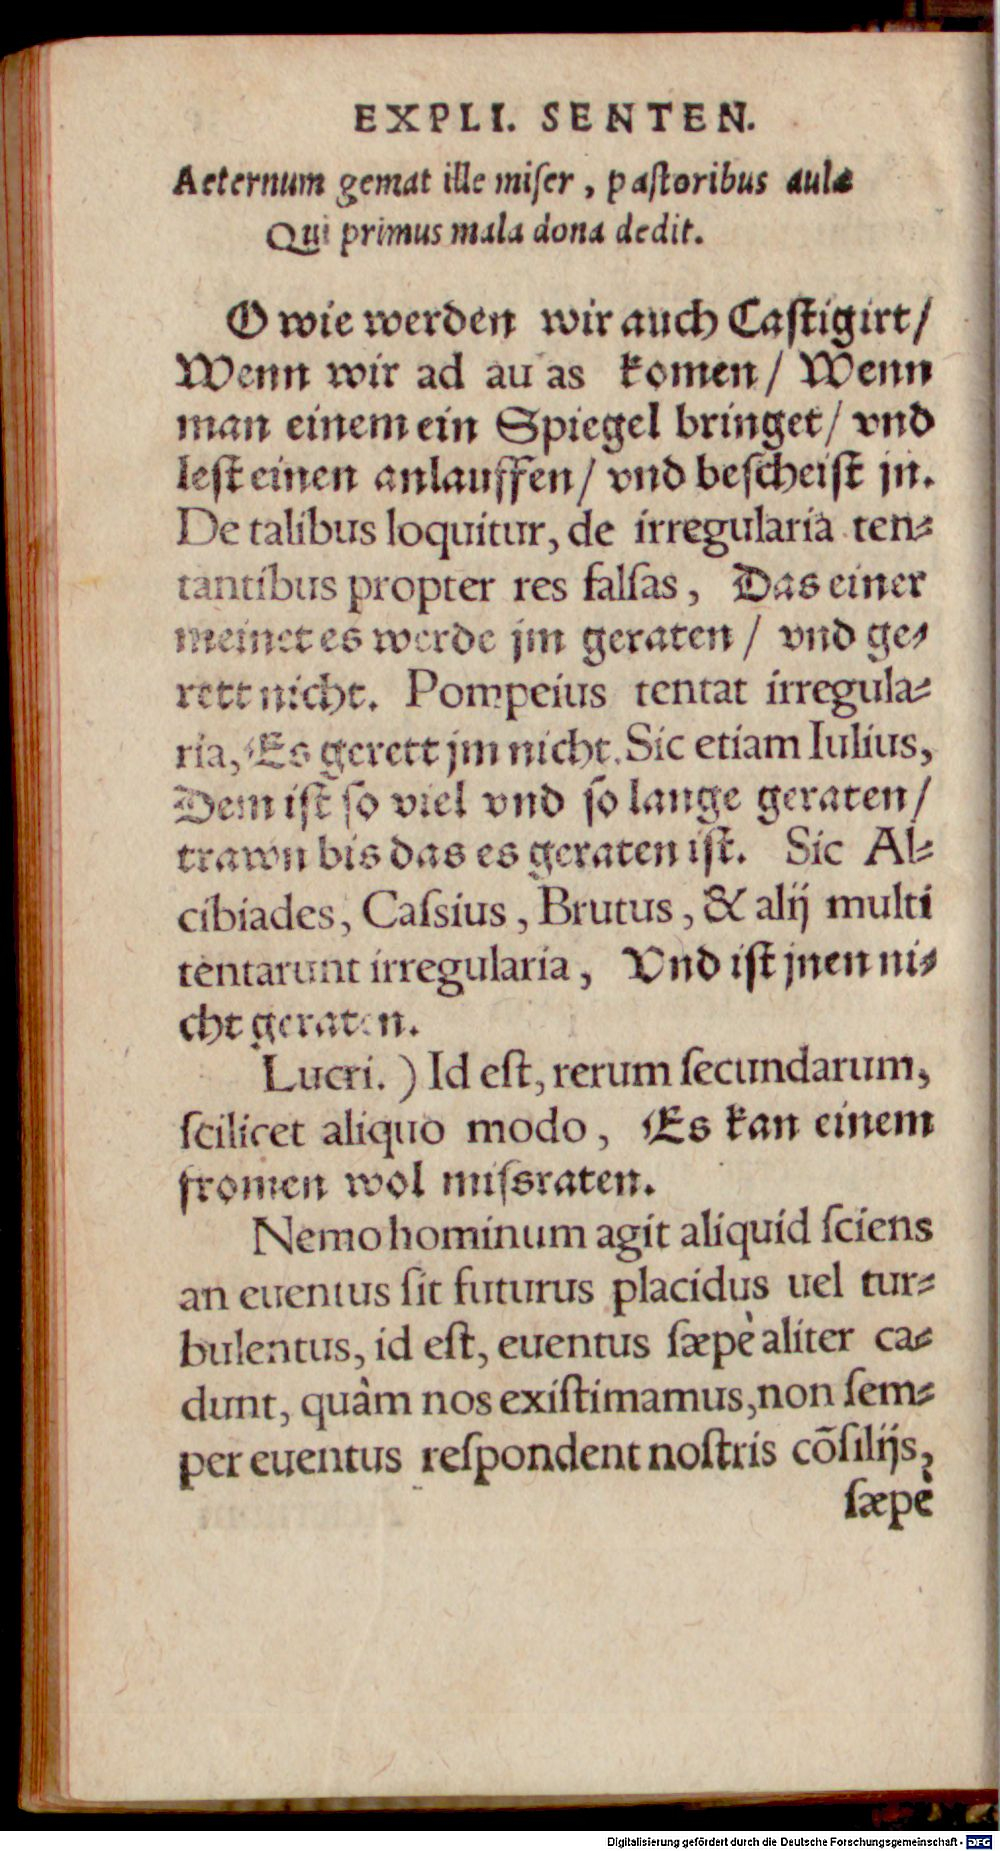 EXPLI. SENTEN.
Aeternum gemat ille miser, pastoribus aulæ
Qui primus mala dona dedit.
O wie werden wir auch Castigirt/
Wenn wir ad au as komen/ Wenn
man einem ein Spiegel bringet/ vnd
lest einen anlauffen/ vnd bescheist jn.
De talibus loquitur, de irregularia ten⸗
tantibus propter res falsas, Das einer
meinet es werde jm geraten/ vnd ge⸗
rett nicht. Pompeius tentat irregula⸗
ria, Es gerett jm nicht. Sic etiam Iulius,
Dem ist so viel vnd so lange geraten/
trawn bis das es geraten ist. Sic Al⸗
cibiades, Cassius, Brutus, & alij multi
tentarunt irregularia, Vnd ist jnen ni⸗
cht geraten.
Lucri.) Id est, rerum secundarum,
scilicet aliquo modo, Es kan einem
fromen wol missraten.
Nemo hominum agit aliquid sciens
an euentus sit futurus placidus uel tur⸗
bulentus, id est, euentus sæpè aliter ca⸗
dunt, quàm nos existimamus, non sem⸗
per euentus respondent nostris cõsilijs,
sæpè
Digitalisierung gefördert durch die Deutsche Forschungsgemeinschaft - DFG